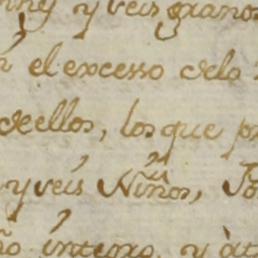 y veis granos
el excesso de lo
de ellos, los que
y veis Niños,
intero, y